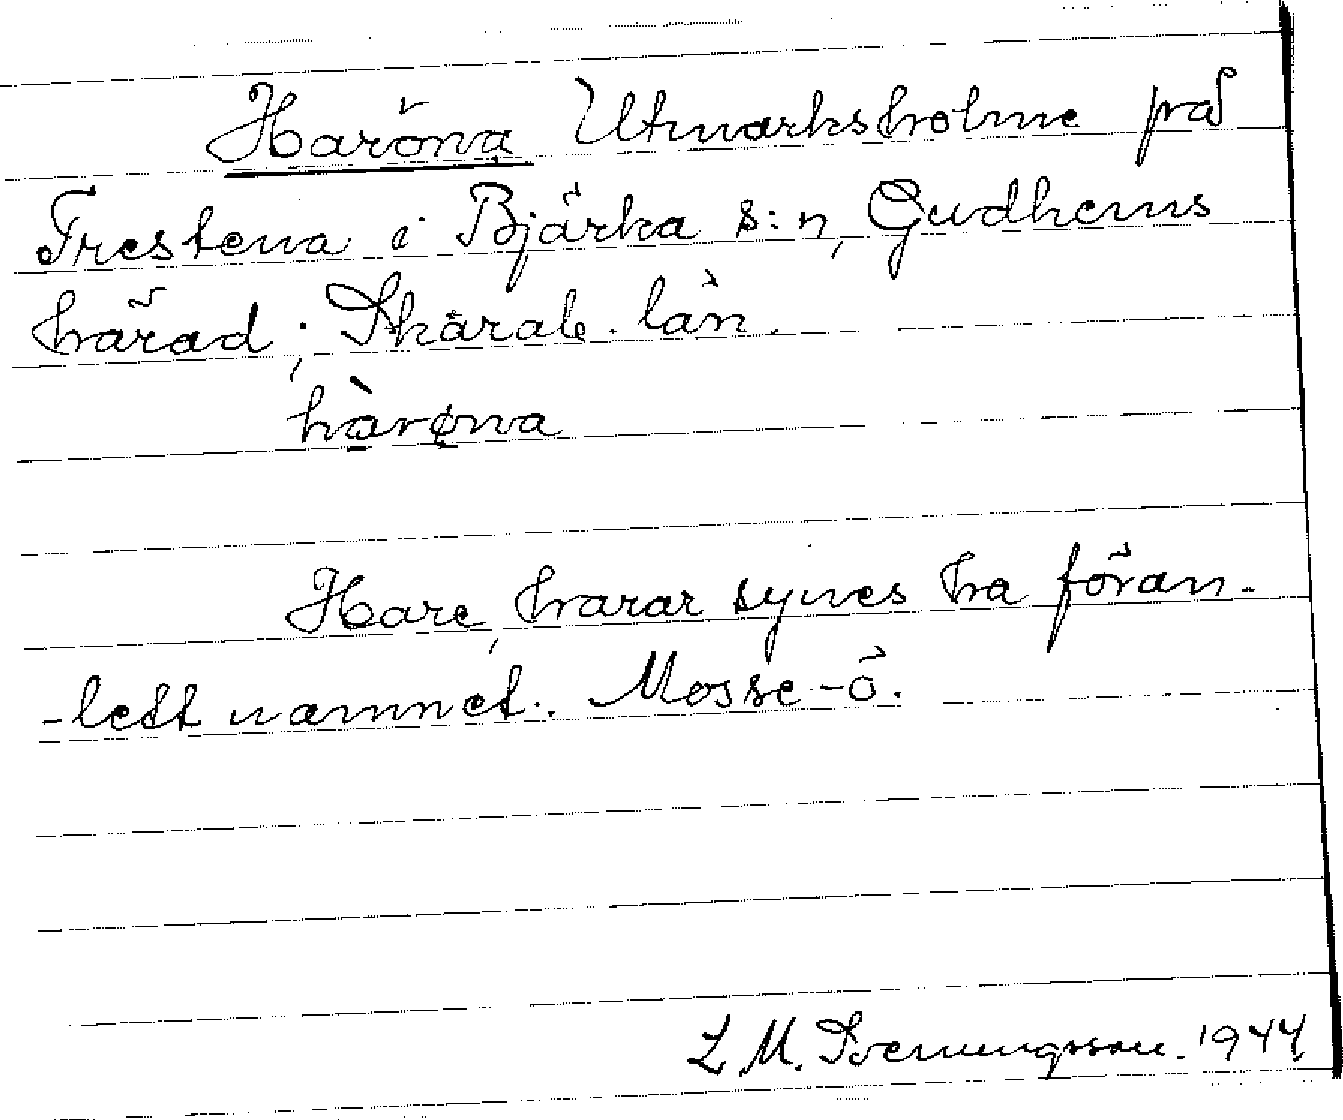 Haröna Utmarksholme på
Trestena i Bjärka s:n, Gudhems
härad, Skarab. län.
hàrøna
Hare, harar synes ha föran-
-lett namnet. Mosse-ö.
L M. Svenungsson. 1944